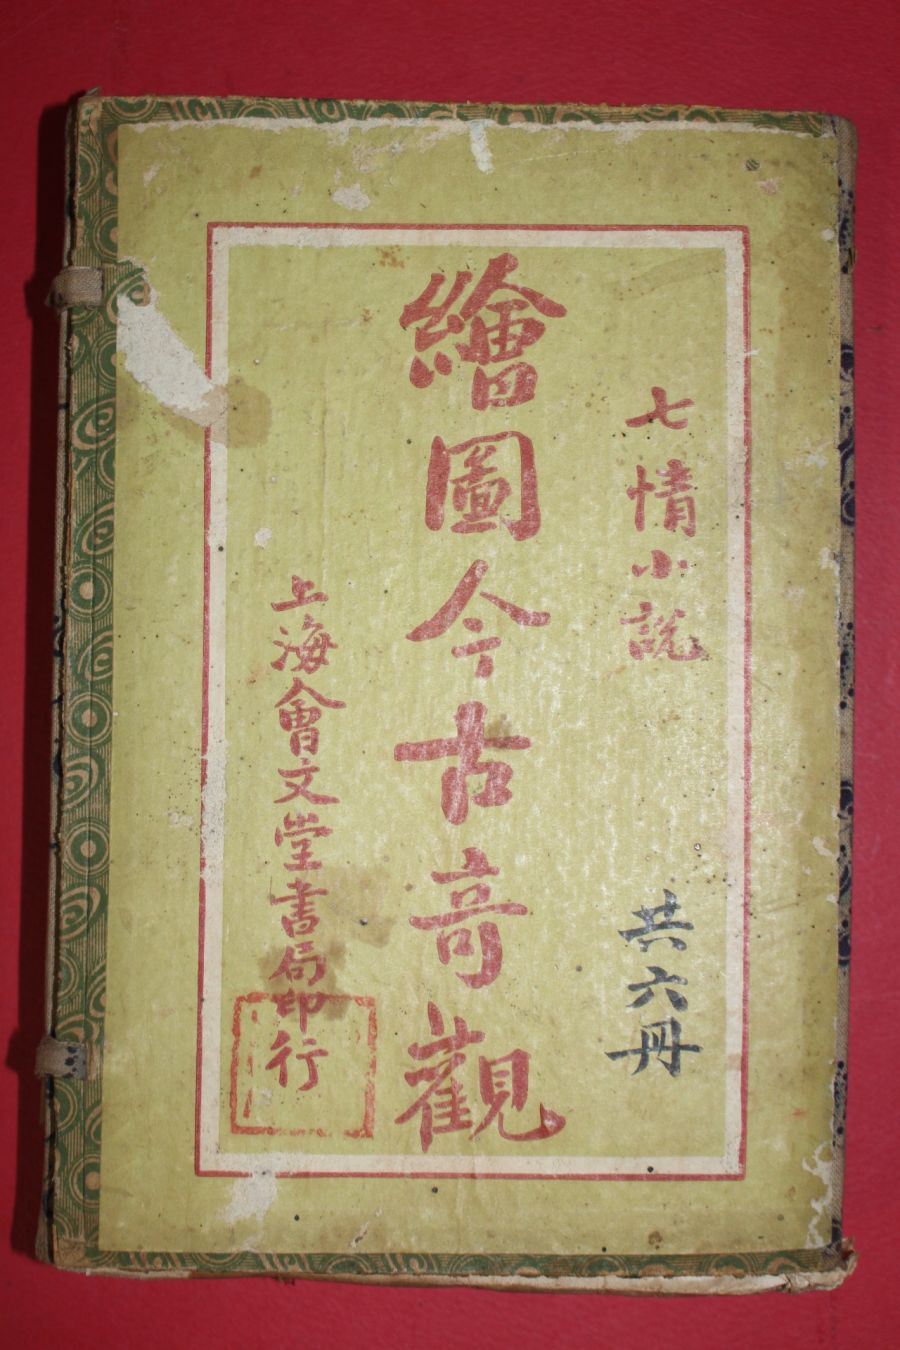 七情小説
共六冊
繪圖今古奇觀
上海會文堂書局印行